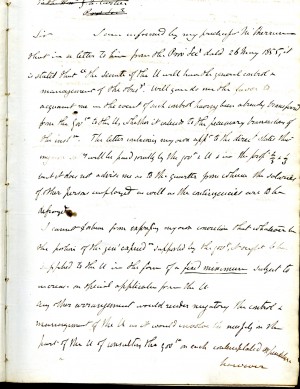 Sir I am informed by my predecessor Mr
that in a letter to him from the Prov Secy dated 26 May 1855, it
is stated that "the Senate of the U will have the general control &
management of the Obsy". Will you do me the favor to
acquaint me in the event of such control having been already transferred
from the Govt to the U, whether it extends to the pecuniary transactions of
the instn. The letter enclosing my own appt to the direcn states that
my will be paid jointly by the Govt & U in the proportn
but it does not advise me as to the quarter from whence the salaries
of other persons employed as well as the contingencies are to be
defrayed
I cannot refrain from expressing my own conviction that whatever be
the portion of the genl expend supported by the Govt it ought to be
supplied to the U in the form of a fixed minimum subject to
increase on special application from the U
Any other arrangement would render nugatory the control &
management of the U as it would involve the necessity on the
part of the U of consulting the Govt on each contemplated
however